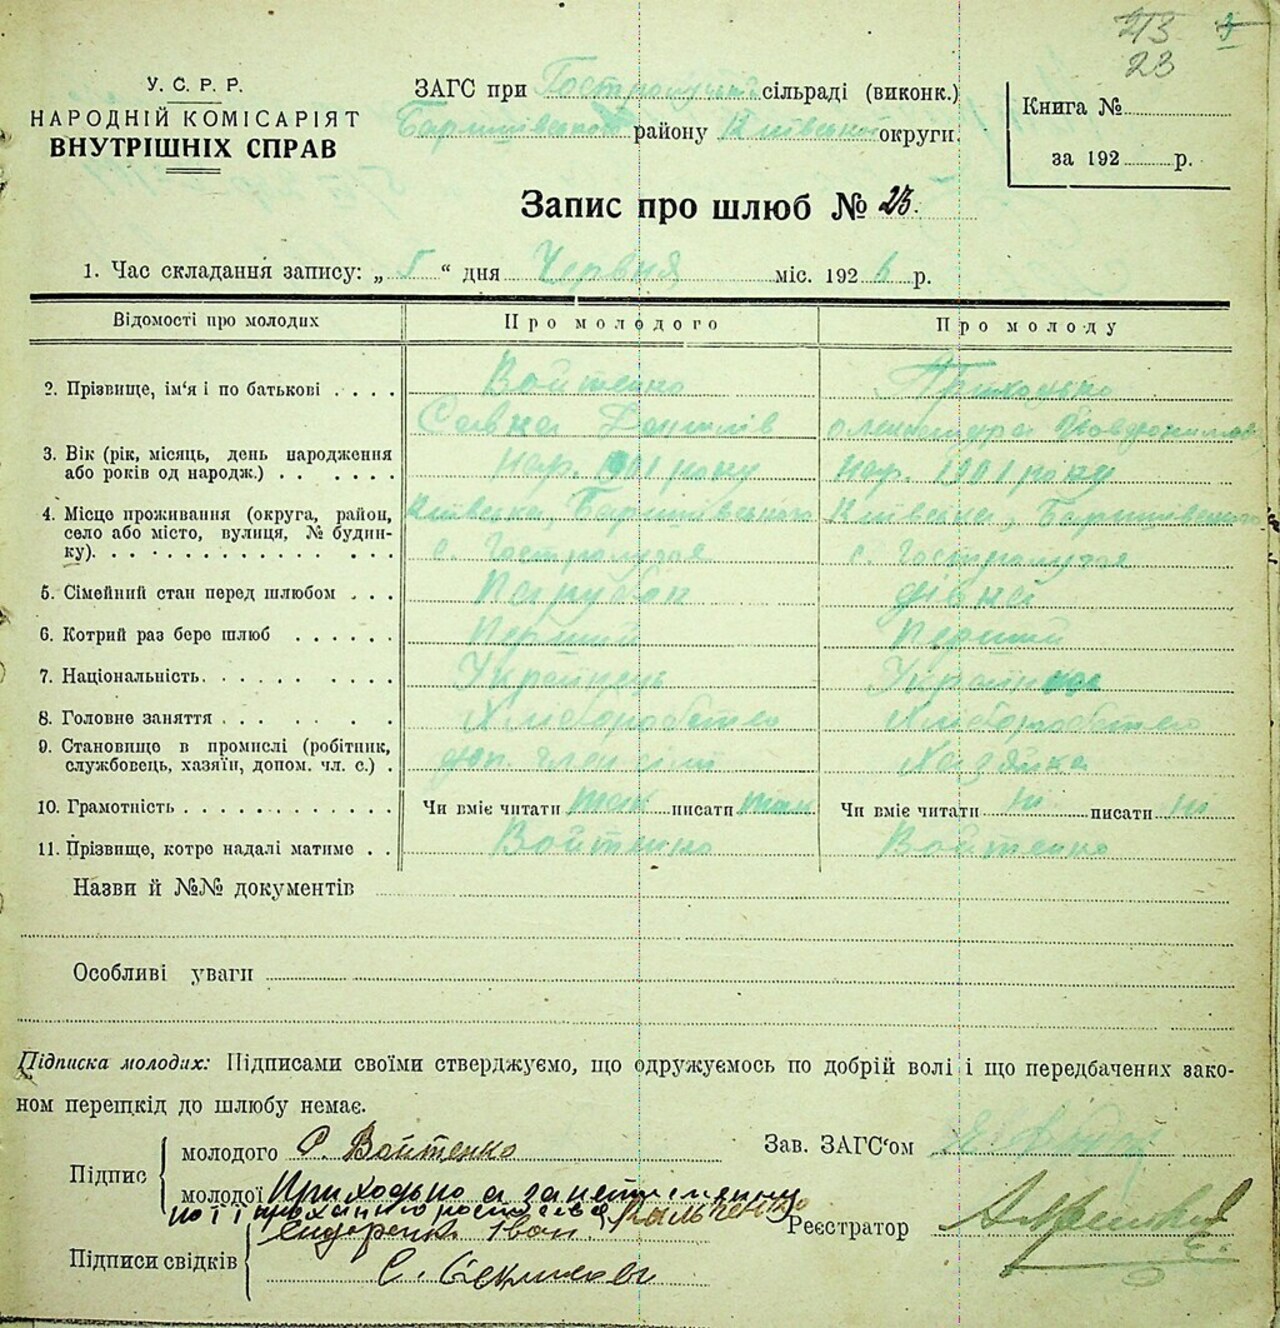 213
23
У. С. Р. Р.
НАРОДНІЙ КОМІСАРІЯТ
ВНУТРІШНІХ СПРАВ
ЗАГС при Гостролуцькій сільраді (виконк.)
Баришівського району Київської округи.
Книга №
за 192 р.
Запис про шлюб № 23.
1. Час складання запису: „ 5 “ дня Червня міс. 192 6 р.
Відомості про молодих Про молодого Про молоду
2. Прізвище, ім'я і по батькові Войтенко Приходько
Савка Данилів Олександра
3. Вік (рік, місяць, день народження або років од народж.) нар. 1901 року нар. 1901 року
4. Місце проживання (округа, район, село або місто, вулиця, № будинку). Київська, Баришівського Київська, Баришівського
с. Гостролуччя с. Гостролуччя
5. Сімейний стан перед шлюбом Парубок дівка
6. Котрий раз бере шлюб Перший Перший
7. Національність Українець Українка
8. Головне заняття Хліборобство Хліборобство
9. Становище в промислі (робітник, службовець, хазяїн, допом. чл. с.) доп. член сім'ї Хазяйка
10. Грамотність Чи вміє читати так писати так Чи вміє читати ні писати ні
11. Прізвище, котре надалі матиме Войтенко Войтенко
Назви й №№ документів
Особливі уваги
Підписка молодих: Підписами своїми стверджуємо, що одружуємось по добрій волі і що передбачених зако-
ном перешкід до шлюбу немає.
Підпис
молодого С. Войтенко
молодої Приходько а за неписьменну
по її проханню Кальченко
Підписи свідків
Сидоренко Іван
С.
Зав. ЗАГС'ом
Реєстратор